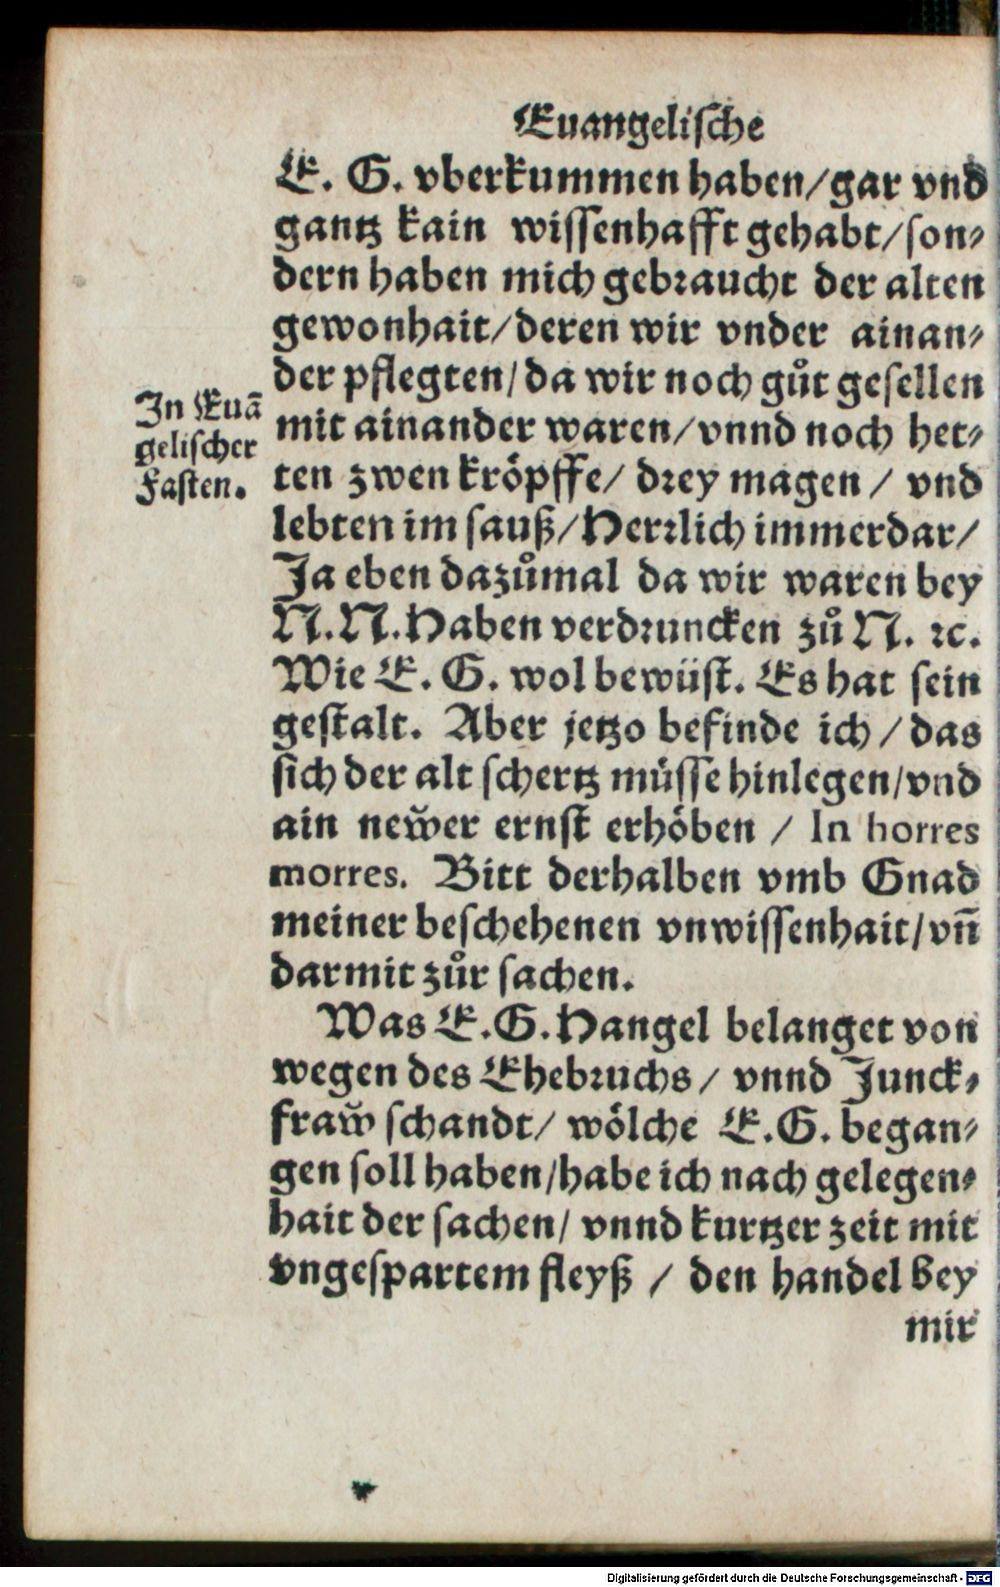 Euangelische
E. G. vberkummen haben/gar vnd
gantz kain wissenhafft gehabt/son⸗
dern haben mich gebraucht der alten
gewonhait/deren wir vnder ainan⸗
der pflegten/da wir noch gůt gesellen
mit ainander waren/vnnd noch het⸗
ten zwen kröpffe/ drey magen / vnd
lebten im sauß/Herrlich immerdar/
Ja eben dazůmal da wir waren bey
N.N.Haben verdruncken zů N. ꝛc.
Wie E. G. wol bewüst. Es hat sein
gestalt. Aber jetzo befinde ich / das
sich der alt schertz müsse hinlegen/vnd
ain new̌er ernst erhöben / In horres
morres. Bitt derhalben vmb Gnad
meiner beschehenen vnwissenhait/vñ
darmit zůr sachen.
Was E.G.Hangel belanget von
wegen des Ehebruchs/ vnnd Junck⸗
fraw̌ schandt/ wölche E.G. began⸗
gen soll haben/habe ich nach gelegen⸗
hait der sachen/ vnnd kurtzer zeit mit
vngespartem fleyß / den handel bey
mir
In Euā
gelischer
Fasten.
Digitalisierung gefördert durch die Deutsche Forschungsgemeinschaft - DFG